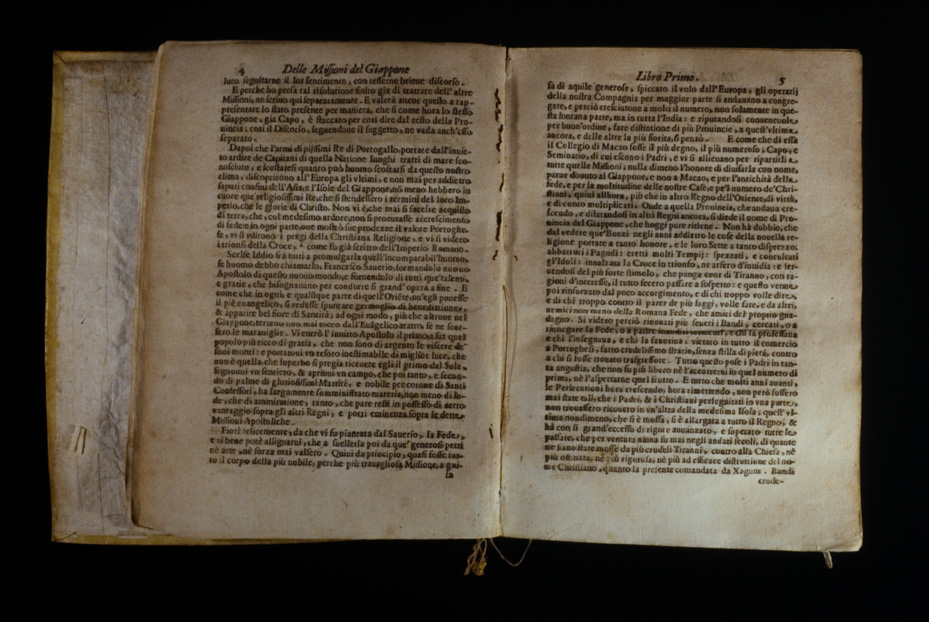 4 Delle Missioni del Giappone
luto seguitarne il lor sentimento, con tesserne brieue discorso.
E perche ho presa tal risolutione finito già di trattare dell'altre
Missioni, ne scriuo qui separatamente. E valerà ancor questo a rap-
presentare lo stato presente per maniera, che sì come hora lo stesso
Giappone, già Capo, è staccato per così dire dal resto della Pro-
uincia; così il Discorso, seguendone il suggetto, ne vada anch'esso
separato.
Dapoi che l'armi di piissimi Re di Portogallo, portate dall'inuit-
to ardire de Capitani di quella Natione lunghi tratti di mare sco-
nosciuto, e scostatesi quanto può huomo scostarsi da questo nostro
clima, discoprirono all'Europa gli vltimi, e non mai per addietro
saputi confini dell'Asia, e l'Isole del Giappone, nō meno hebbero in
cuore que religiosissimi Re, che si stendessero i termini del loro Im-
perio, che le glorie di Christo. Non vi è, che mai si facesse acquisto
di terra, che, col medesimo ardore, non si procurasse accrescimento
di fede in ogni parte, oue mostrò sue prodezze il valore Portoghe-
se, vi si vdirono i pregi della Christiana Religione, e vi si videro
i trionfi della Croce, come fù già scritto dell'Imperio Romano.
Scelse Iddio frà tutti a promulgarla quell'incomparabil'huomo,
se huomo debbo chiamarlo, Francesco Sauerio, formandolo nuouo
Apostolo di questo nuouo mondo, e fornendolo di tutti que' talenti,
e gratie, che bisognauano per condurre sì grand'opera a fine. E
come che in ogni, e qualūque parte di quell'Oriēte, ou'egli ponesse
il piè euangelico, si vedesse spuntare germoglio di benedittione,
& apparire bel fiore di Santità; ad ogni modo, più che altroue nel
Giappone, terreno non mai tocco dall'Euāgelico aratro, se ne scor-
sero le marauiglie. Vi entrò l'inuitto Apostolo il primo, a far quel
popolo più ricco di gratia, che non sono di argento le viscere de'
suoi monti: e portatoui vn tesoro inestimabile di miglior luce, che
non è quella, che superbo si pregia riceuere egli il primo dal Sole,
segnouui vn sentiero, & aprioui vn campo, che poi tanto, e secon-
do di palme di gloriosissimi Martiri, e nobile percorone di Santi
Confessori, ha largamente somministrato materia, non meno di lo-
de, che di ammiratione; tanto, che pare resti in possesso di certo
vantaggio sopra gli altri Regni, e porti eminenza sopra le dette
Missioni Apostoliche.
Fiorì felicemente, da che vi fu piantata dal Sauerio, la Fede,
e sì bene potè allignarui, che a suellerla poi da que' generosi petti
nè arte, nè forza mai valsero. Quiui da principio, quasi fosse tut-
to il corpo della più nobile, perche più trauagliosa Missione, a gui-
sa
Libro Primo. 5
sa di aquile generose, spiccato il volo dall'Europa, gli operarij
della nostra Compagnia per maggior parte si andauano a congre-
gare, e perciò cresciutone a molti il numero, non solamente in que-
sta lontana parte, ma in tutta l'India; e riputandosi conueneuole
per buon'ordine, fare distintione di più Prouincie, a quest'vltima
ancora, e delle altre la più fiorita, si pensò. E come che di essa
il Collegio di Macao fosse il più degno, il più numeroso, Capo, e
Seminario, di cui escono i Padri, e vi si alleuano per ripartirli a
tutte quelle Missioni; nulla dimeno l'honore di diuisarla con nome,
parue douuto al Giappone, e non a Macao, e per l'antichità della
fede, e per la moltitudine delle nostre Case, e pe'l numero de' Chri-
stiani, quiui allhora, più che in altro Regno dell'Oriente, di virtù,
e di conto moltiplicati. Onde a quella Prouincia, che andaua cre-
scendo, e dilatandosi in altri Regni ancora, si diede il nome di Pro-
uincia del Giappone, che hoggi pure ritiene. Non hà dubbio, che
dal vedere que' Bonzi negli anni addietro le cose della nouella re-
ligione portate a tanto honore, e le loro Sette a tanto disprezzo;
abbattuti i Pagodi: eretti molti Tempij: spezzati, e conculcati
gl'Idoli: innalzata la Croce in trionfo, ne arsero d'inuidia: e ser-
uendosi del più forte stimolo, che punga cuor di Tiranno, con ra-
gioni d'interesse, il tutto fecero passare a sospetto: e questo venne
poi rinforzato dal poco accorgimento, e di chi troppo volle dire,
e di chi troppo contro il parer de più saggi, volle fare, e da altri,
nemici non meno della Romana Fede, che amici del proprio gua-
dagno. Si videro perciò rinouati più seueri i Bandi, cercati, o a
rinnegare la Fede, o a patire inauditi tormenti, e chi la professaua
e chi l'insegnaua, e chi la fauoriua: vietato in tutto il comercio
a Portoghesi, fatto crudelissimo stratio, senza stilla di pietà, contro
a chi si fosse trouato trasgressore. Tutto questo pose i Padri in tan-
ta angustia, che non fu più libero nè l'accorrerui in quel numero di
prima, nè l'aspettarne quei frutto. E tutto che molti anni auanti,
le Persecutioni hora crescendo, hora rimettendo, non però fossero
mai state tali, che i Padri, & i Christiani perseguitati in vna parte,
non trouassero ricouero in vn'altra della medesima Isola; quest'vl-
tima nondimeno, che si è mossa, si è allargata a tutto il Regno, &
hà con sì grand'eccesso di rigore auanzato, e superato tutte le
passate, che per ventura niuna fu mai negli andati secoli, di quante
ne siano state mosse da più crudeli Tiranni, contro alla Chiesa, nè
più ostinata, nè più rigorosa, nè più ad efficace distruttione del no-
me Christiano, quanto la presente comandata da Xagum. Bandi
crude-